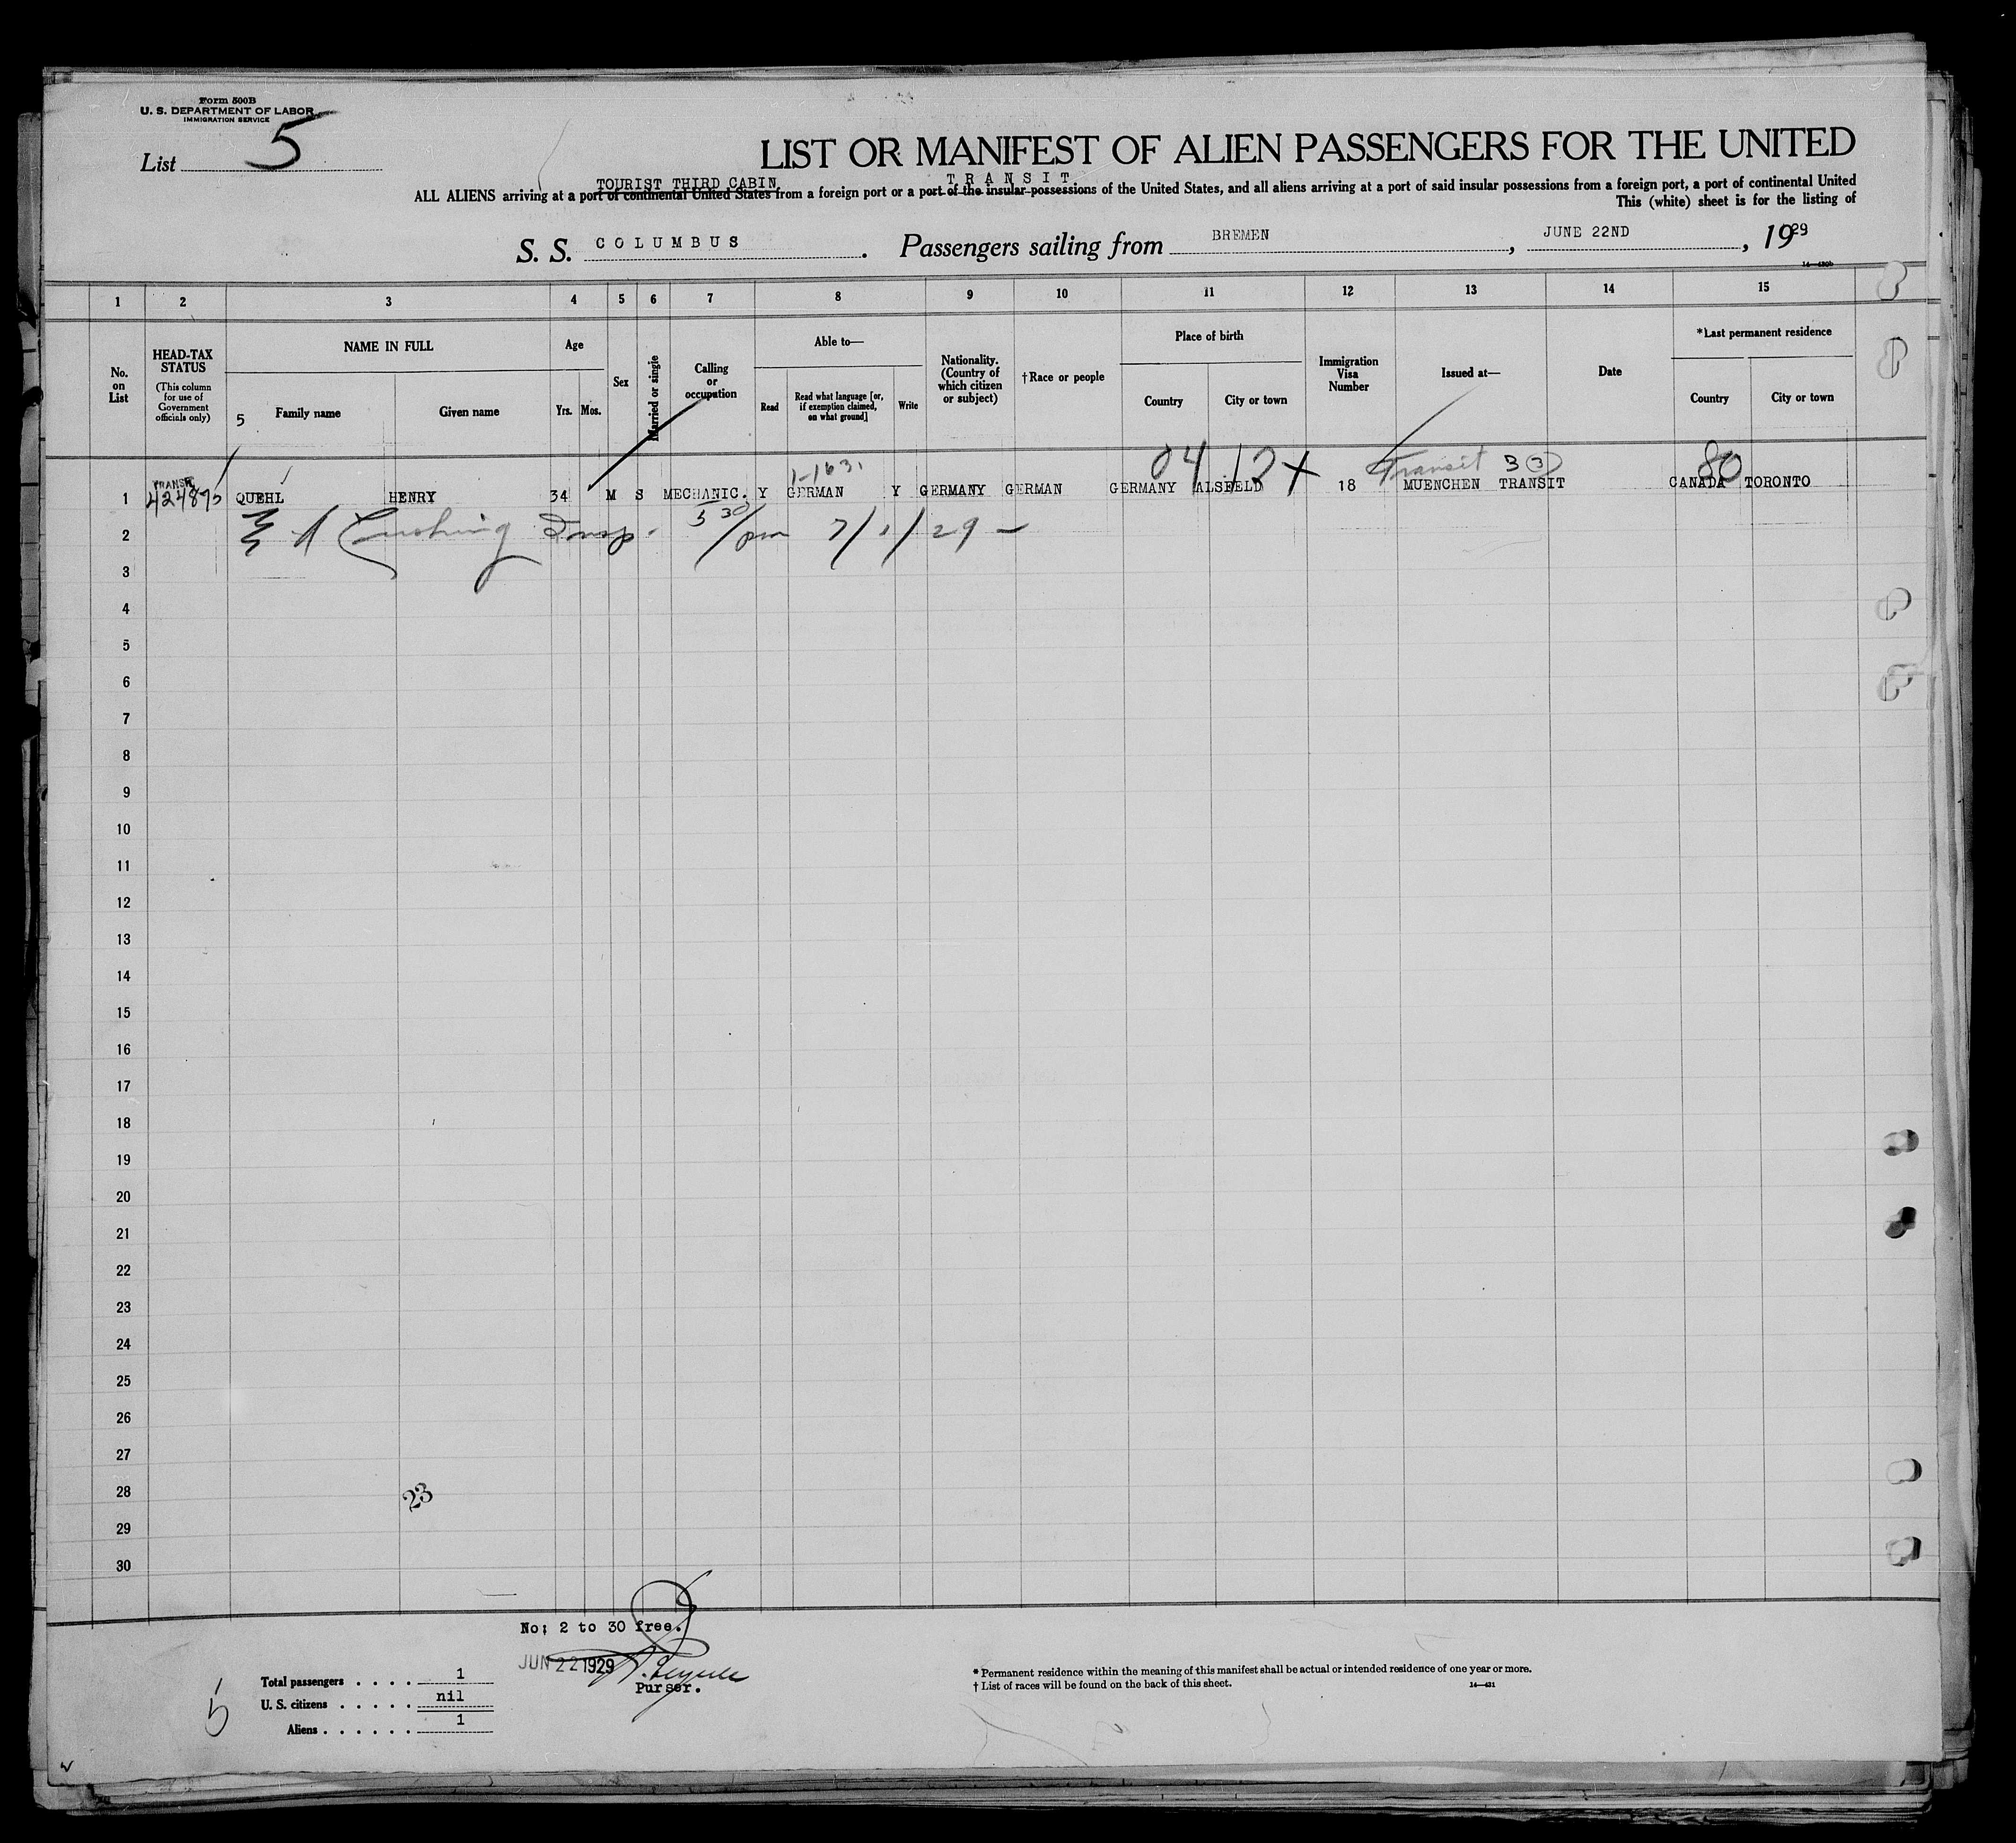 Form 500B
U. S. DEPARTMENT OF LABOR
IMMIGRATION SERVICE
List 5
LIST OR MANIFEST OF ALIEN PASSENGERS FOR THE UNITED
TOURIST THIRD CABIN TRANSIT
ALL ALIENS arriving at a port of continental United States from a foreign port or a port of the insular possessions of the United States, and all aliens arriving at a port of said insular possessions from a foreign port, a port of continental United
This (white) sheet is for the listing of
S. S. COLUMBUS. Passengers sailing from BREMEN, JUNE 22ND, 1929
1 2 3 4 5 6 7 8 9 10 11 12 13 14 15
No. on List
HEAD-TAX STATUS (This column for use of Government officials only)
NAME IN FULL
5 Family name Given name
Age
Yrs. Mos.
Sex
Married or single
Calling or occupation
Able to—
Read Read what language [or, if exemption claimed, on what ground] Write
Nationality. (Country of which citizen or subject)
†Race or people
Place of birth
Country City or town
Immigration Visa Number
Issued at—
Date
*Last permanent residence
Country City or town
04 12 X Transit 3 (3) 80
TRANSIT
1 QUEHL HENRY 34 M S MECHANIC. Y GERMAN Y GERMANY GERMAN GERMANY ALSFELD 18 MUENCHEN TRANSIT CANADA TORONTO
2 Cushing Insp. 5 30/pm 7/1/29 —
3
4
5
6
7
8
9
10
11
12
13
14
15
16
17
18
19
20
21
22
23
24
25
26
27
28
23
29
30
No; 2 to 30 free.
JUN 22 1929
Purser.
Total passengers . . . . 1
U. S. citizens . . . . . nil
Aliens . . . . . . 1
5
* Permanent residence within the meaning of this manifest shall be actual or intended residence of one year or more.
† List of races will be found on the back of this sheet.
14—431